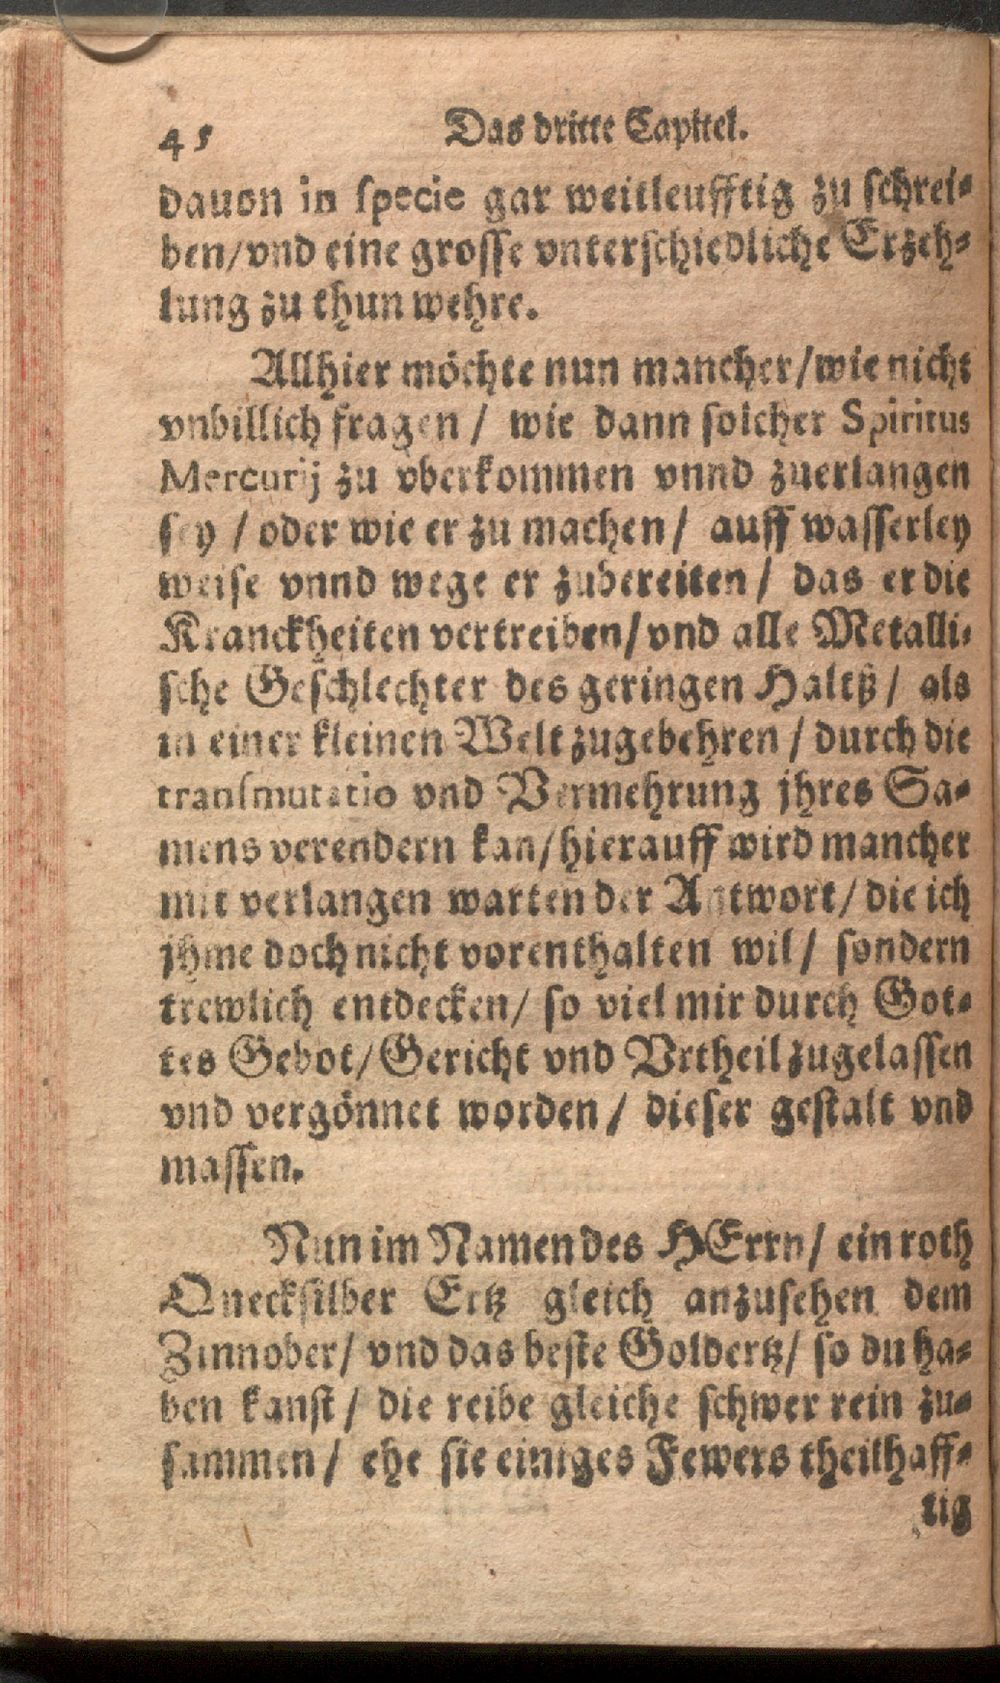 45 Das dritte Capittel.
dauon in specie gar weitleufftig zu schrei-
ben/vnd eine grosse vnterschiedliche Erzeh-
lung zu thun wehre.
Allhier möchte nun mancher/wie nicht
vnbillich fragen / wie dann solcher Spiritus
Mercurij zu vberkommen vnnd zuerlangen
sey / oder wie er zu machen / auff wasserley
weise vnnd wege er zubereiten / das er die
Kranckheiten vertreiben/vnd alle Metalli-
sche Geschlechter des geringen Haltß / als
in einer kleinen Welt zugebehren / durch die
transmutatio vnd Vermehrung jhres Sa-
mens verendern kan/hierauff wird mancher
mit verlangen warten der Antwort/ die ich
jhme doch nicht vorenthalten wil / sondern
trewlich entdecken/ so viel mir durch Got-
tes Gebot/Gericht vnd Vrtheil zugelassen
vnd vergönnet worden / dieser gestalt vnd
massen.
Nun im Namen des HErrn/ ein roth
Quecksilber Ertz gleich anzusehen dem
Zinnober/ vnd das beste Goldertz/ so du ha-
ben kanst / die reibe gleiche schwer rein zu-
sammen / ehe sie einiges Fewers theilhaff-
tig